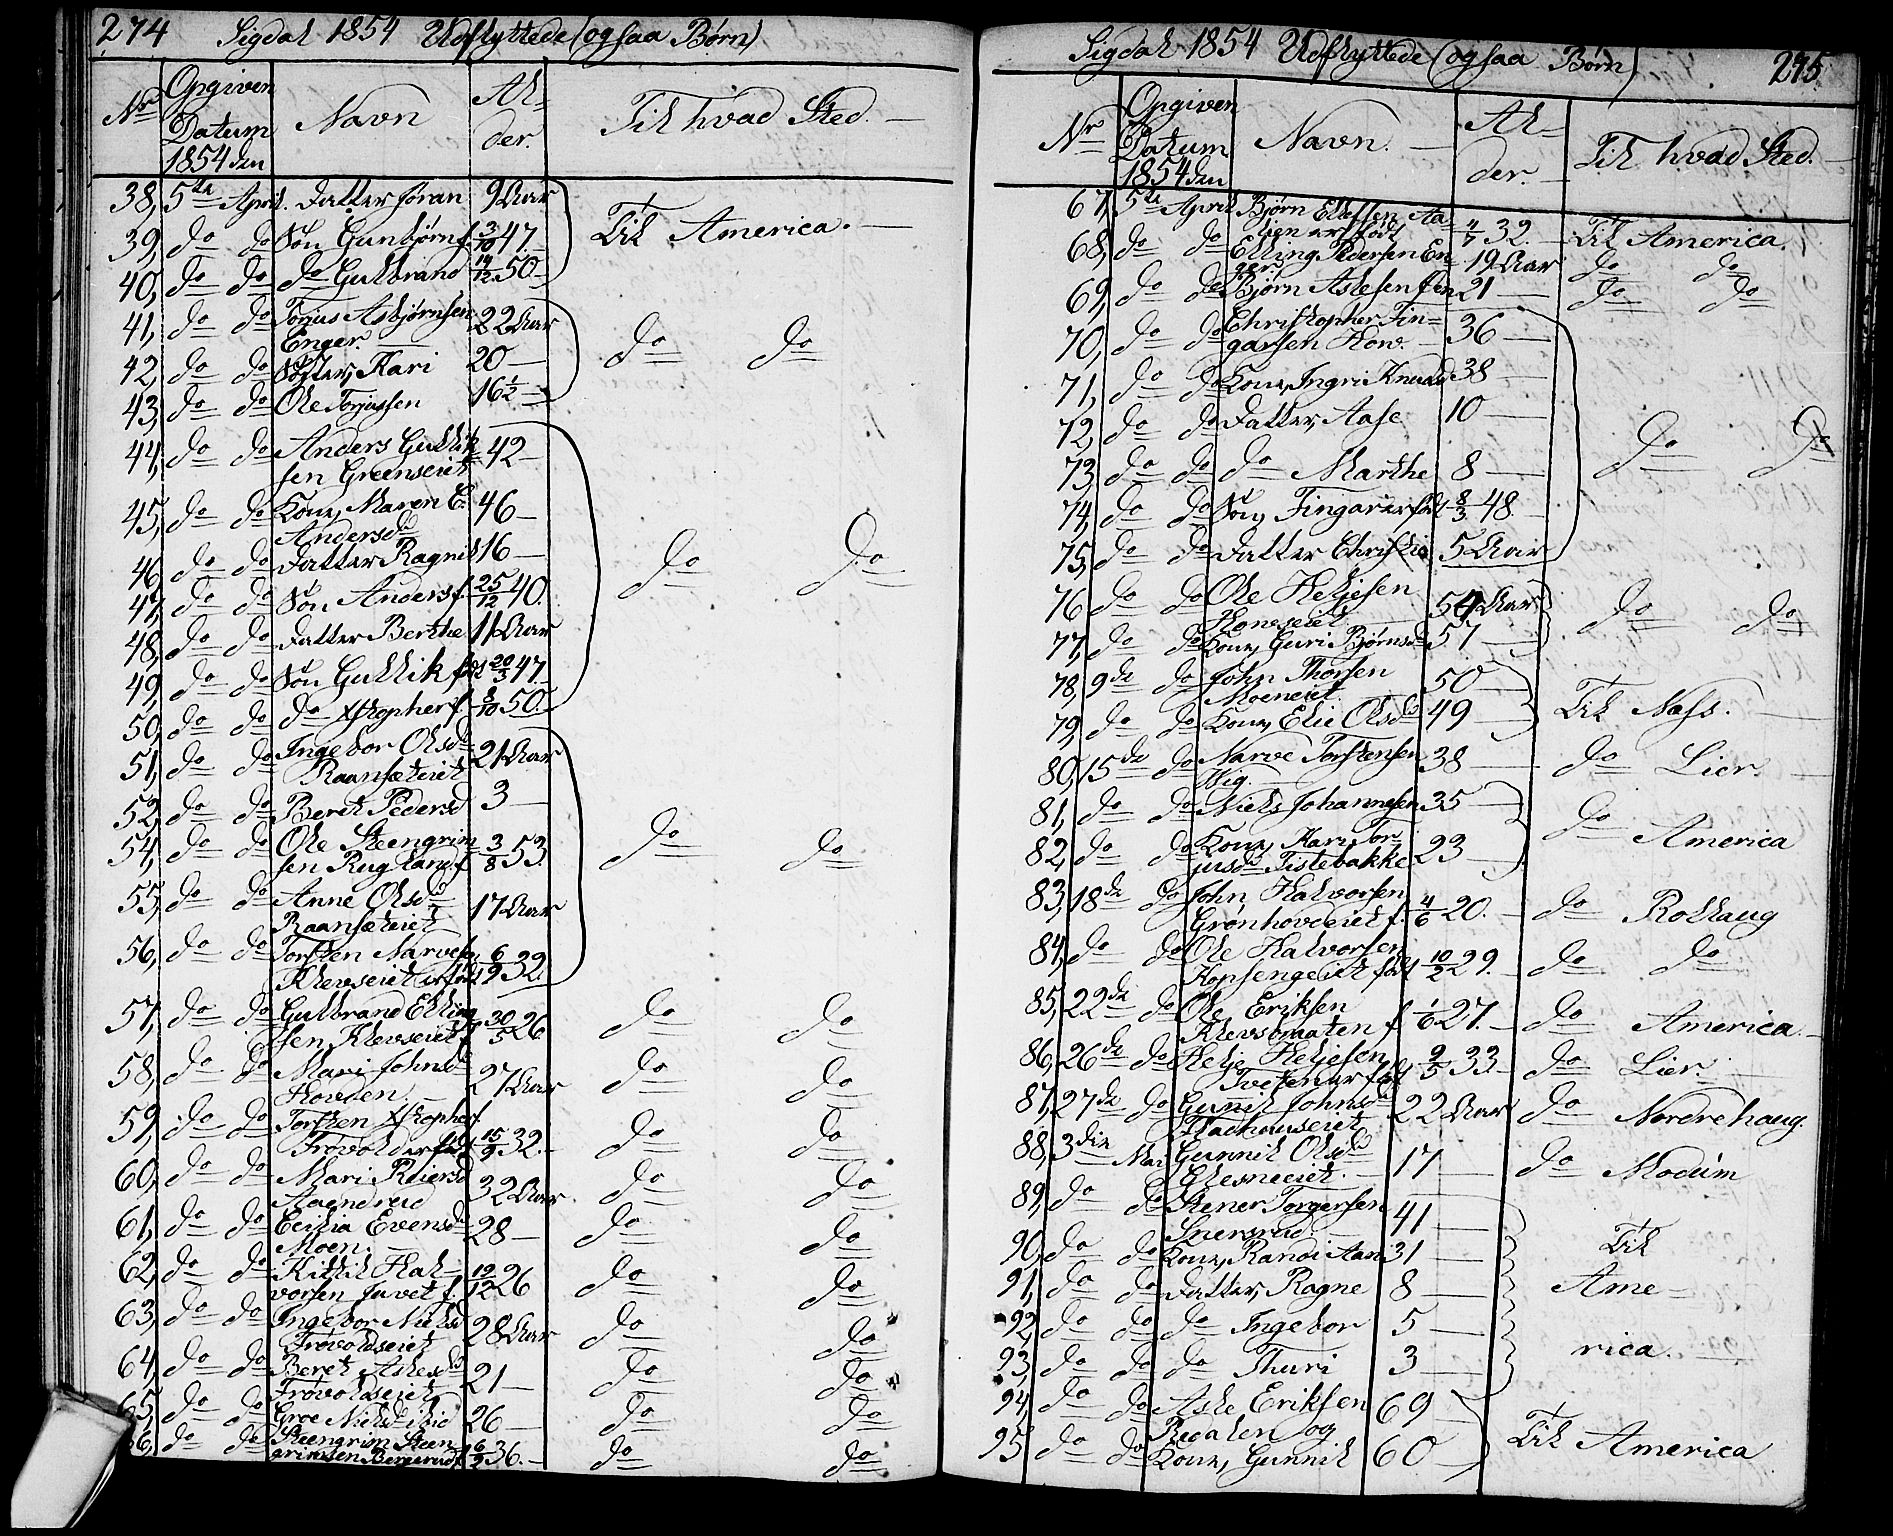 274 Sigdal 1854 Udflyttede (ogsaa Børn)
Nr Opgiven Datum 1854 den Navn Alder. Til hvad Sted.
38, 5te April. Datter Jøran 9 Aar
39, do do Søn Gunbjørn f. 3/10 47. Til America.
40, do do do Gulbrand 14/12 50
41, do do Torjus Asbjørnsen 22 Aar
Enger do do
42, do do Søster, Kari 20
43, do do Ole Torjussen 16 1/2
44, do do Anders Gullik 42
sen Greenseiet
45, do do Kone, Maren C. 46
Andersd. do do
46, do do Datter Ragnil 16
47, do do Søn Anders f. 25/12 40.
48, do do Datter Berthe 11 Aar
49, do do Søn Gullik fød 20/3 47.
50, do do do Xstopher f. 8/10 50.
51, do do Ingebor Olsd. 21 Aar
Raansæteiet
52, do do Beret Pedersd 3
54, do do Ole Steengrim 3/8 53. do do
sen Rugland f
55, do do Anne Olsd. 17 Aar
Raansæteiet
56, do do Torsten Narvesen 6/9 32.
Klevseiet er fød
57, do do Gulbrand Elling 30/5 26 do do
sen Klevseiet f
58, do do Mari Johnsd. 27 Aar do do
Hovden
59, do do Torsten Xstophers.
Frøvold er fød 15/9 32. do do
60, do do Mari Reiersd 32 Aar do do
Aaendrud
61, do do Cicilia Evensd. 28 do do
Moen.
62, do do Kittil Hal= 12/12 26 do do
vorsen Juvet f.
63, do do Ingebor Nielsd 28 Aar do do
Frøvoldseiet
64, do do Beret Aslesd. 21 do do
Frøvoldseiet
65, do do Groe Nielsd. ibid 26 do do
66, do do Steengrim Steen
grimsen Bergerud f. 6/2 36. do do
Sigdal 1854 Udflyttede (ogsaa Børn) 275
Nr Opgiven Datum 1854 den Navn. Alder. Til hvad Sted.
67, 5te April Bjørn Ellefsen Aa
lien er født 4/7 32. Til America.
68, do do Elling Pedersen En 19 Aar do do
ger
69, do do Bjørn Aslesen 21 do do
70, do do Christopher Fin= 36
garsen How.
71, do do Kone, Ingri Knudsd 38
72, do do Datter, Aase 10
73, do do do Marthe 8 do do
74, do do Søn, Fingar er født 8/3 48
75, do do Datter Christie 5 Aar
76 do do Ole Heljesen 54 Aar
Honeseiet do do
77, do do Kone, Guri Bjørnsd. 57
78, 9de do John Thorsen 50
Moeneiet Til Næss.
79, do do Kone, Elie Olsd. 49
80, 15de do Narve Torstensen 38 do Lier.
Wig
81, do do Niels Johannesen 35 do America
82, do do Kone, Kari Tor 23
jusd. Tistebakke
83, 18de do John Halvorsen
Grønhovdeiet f. 4/6 20. do Rollaug
84, do do Ole Halvorsen
Hopsengeiet født 10/2 29. do do
85, 22de do Ole Eriksen
Klevsbraaten f 1/6 27. do America.
86, 26de do Helje Heljesen
Tveten er født 2/5 33 do Lier.
87, 27de do Gunil Johnsd. 22 Aar do Norderhaug.
88, 3die Mai Gunnil Olsd. 17 do Modum
Glesneeiet.
89, do do Stener Torgersen 41
Snersrud
90, do do Kone, Randi Aan 31 Til
91, do do Datter, Ragne 8 Ame=
92, do do do Ingebor 5
93, do do do Thuri 3 rica.
94, do do Asle Eriksen 69
Redalen og Til America
95 do do Kone, Gunnil 60